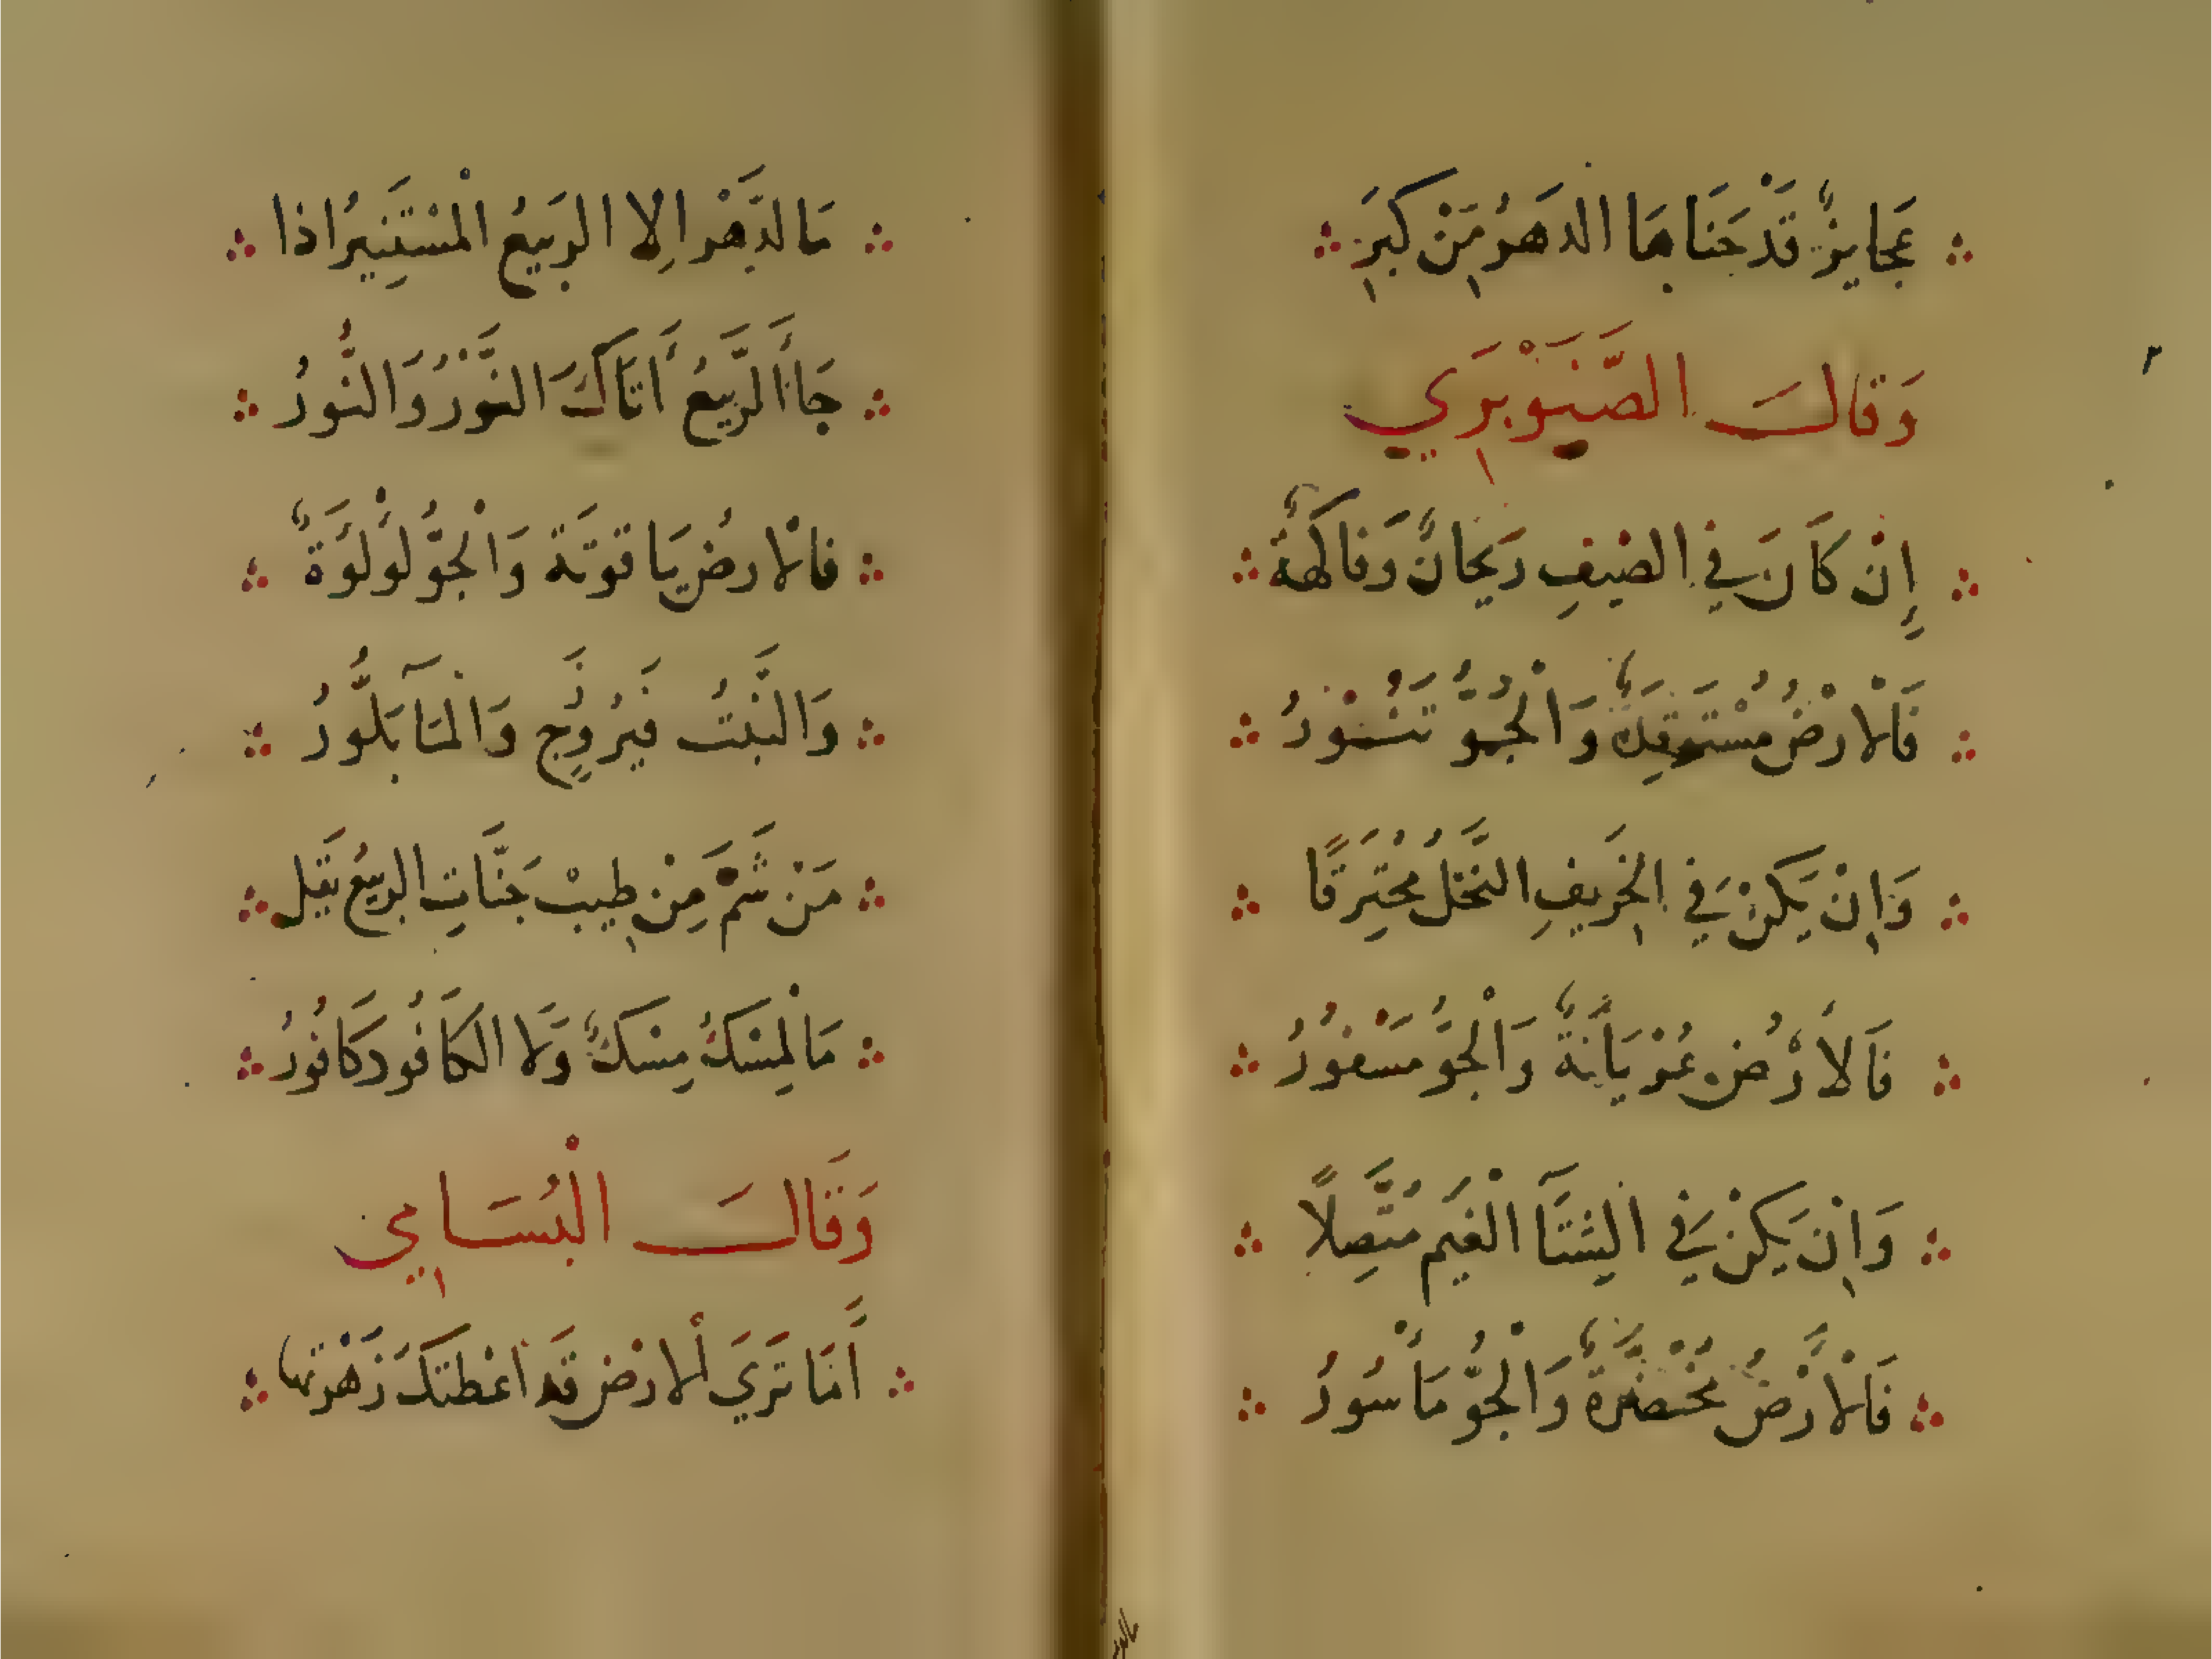 عَجَايزٌ قَدْ حَنَا بهَا الدهَرُ مِنْ كبَرِ
وَقالَ الصَّنَوْبرَي
إِنْ كَانَ في الصَيفِ رَيحانٌ وَفاكهةٌ
فَالْارْضُ مُسْتَوقَدٌ وَالْجُوُّ تَنُّورُ
وَاِنْ يَكنْ في الخَريفِ النَّخلُ مُخْتَرَقًا
فَالأَرْضُ عُرْيَانَةٌ وَالْجَوُّ مَسْعُورُ
وَاِنْ يَكنْ في الشتَآ الْغَيمُ مُتَّصِلًا
فَالْارْضُ مُخْضَرَّةٌ وَالْجوُّ مَأسُورُ
مَا الدَّهْر اِلا الربَيعُ الْمسْتَنِيرُ اذا
جَاأَالرَّبيعُ أَتَاكَ النَّوْرُ وَالنُّورُ
فالْارضُ يَاقوتَة وَالْجَوُّ لُولُوَةٌ
وَالنَّبتُ فَيرُوزِج وَالْمَآ بَلُّورُ
مَنْ شَمَّ مِنْ طِيبْ جَنَّاتِ الربيعِ يَقل
مَالْمِسْكُ مِسْكٌ وَلا الكَافُور كَافُورُ
وَقَالَ الْبُسَامي
أَمَا تَرَيَ الارْض قَد اعْطتكَ زَهْرتهَا